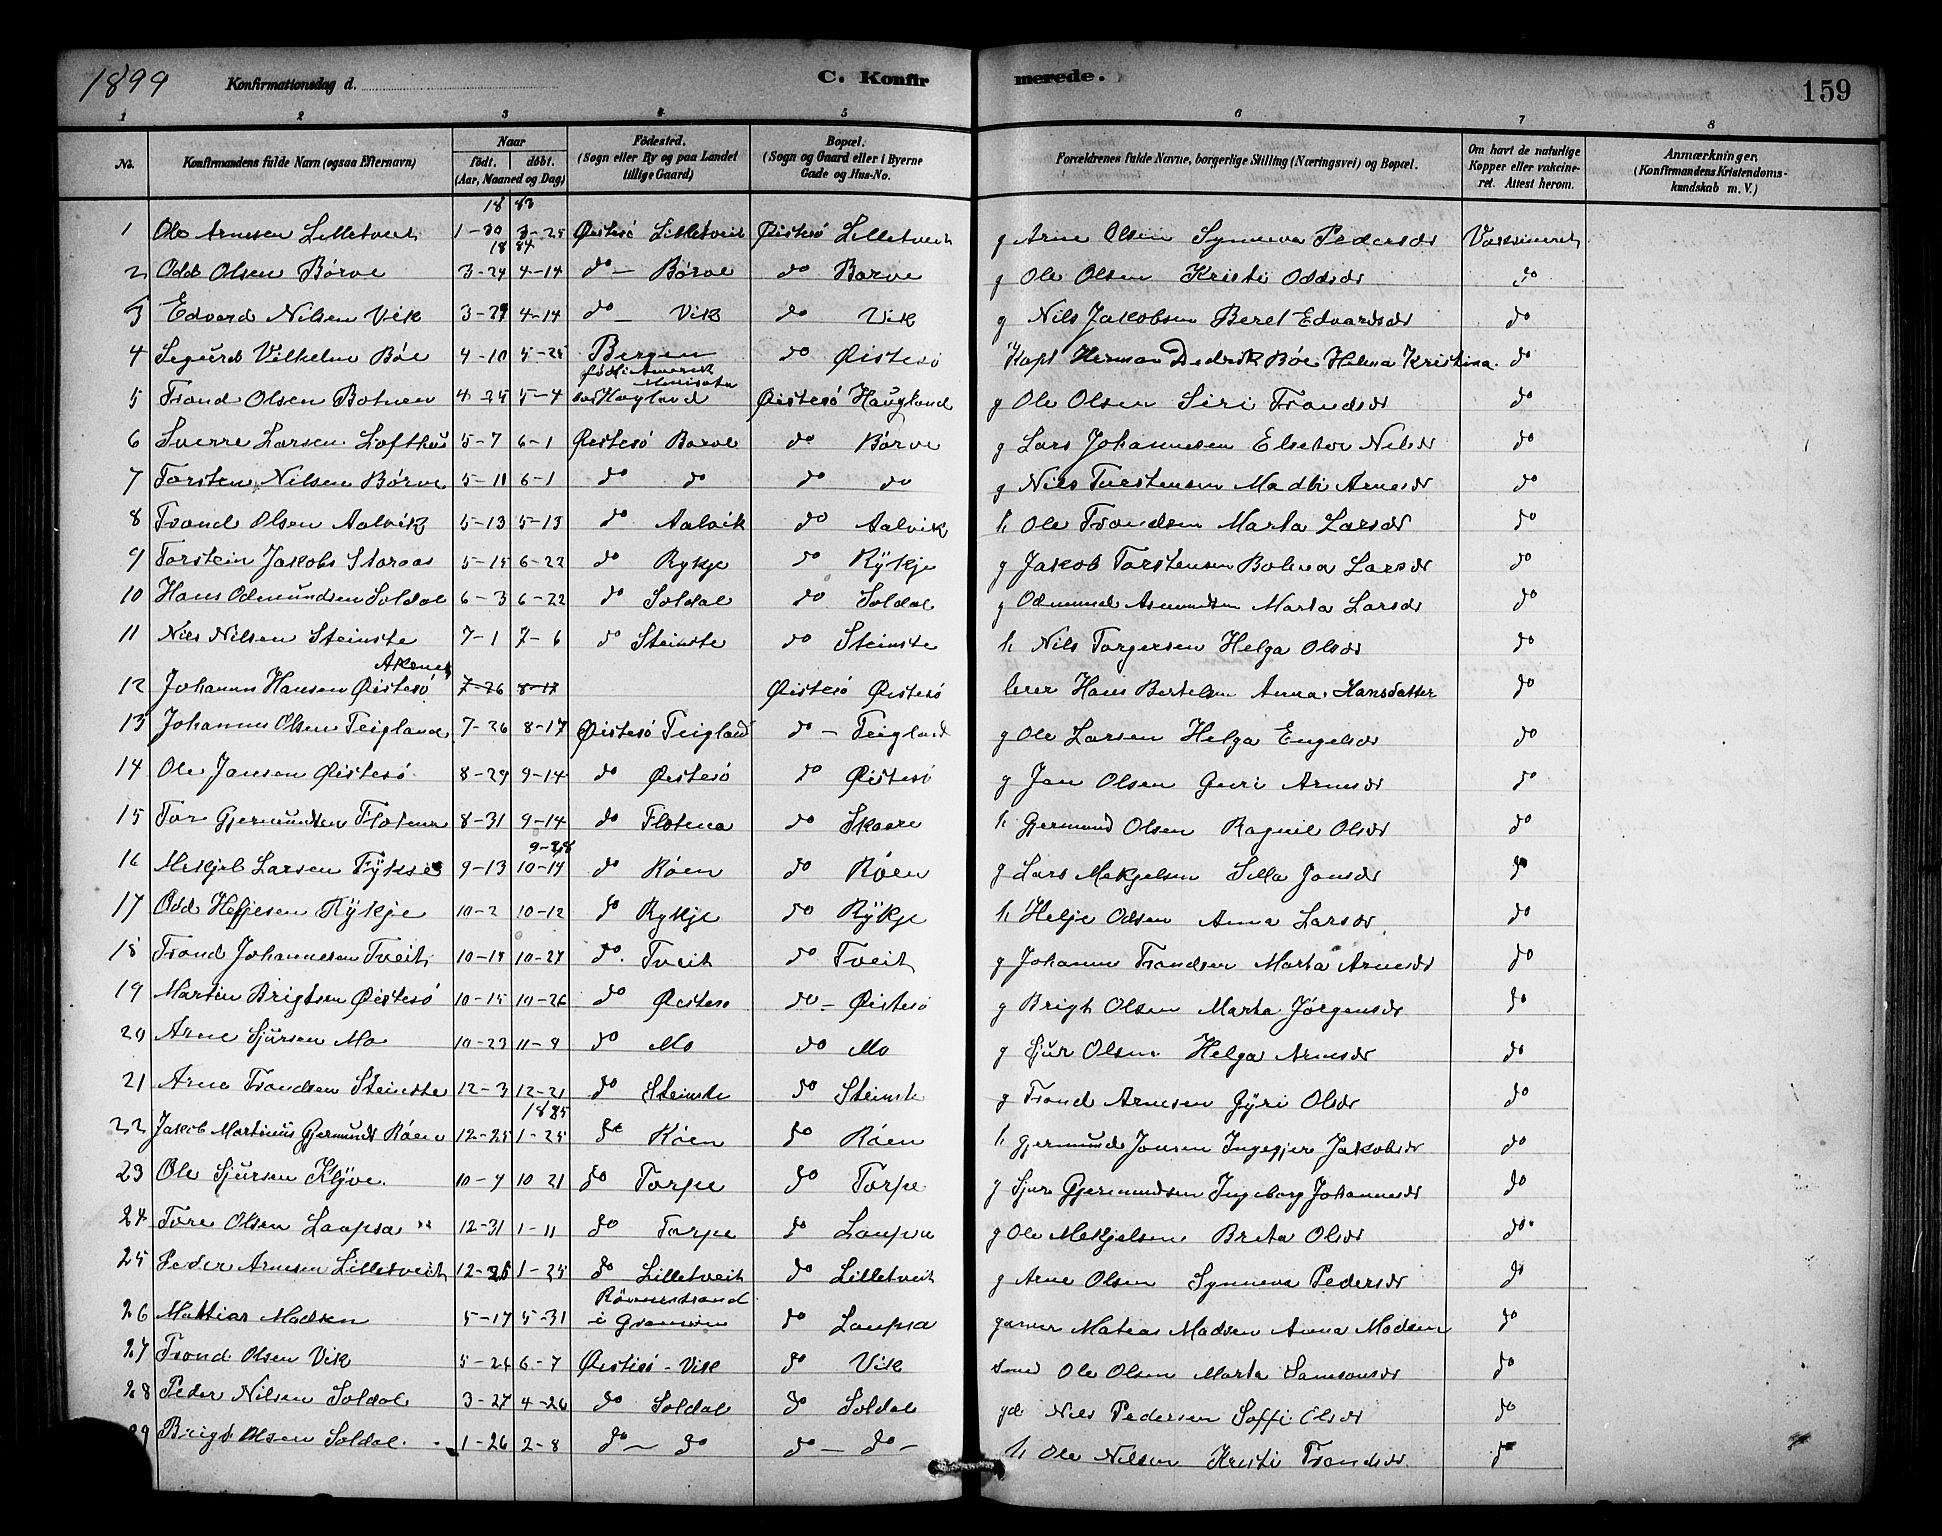 1899 Konfirmationsdag d. C. Konfirmerede. 159
1 2 3 4 5 6 7 8
No. Konfirmandens fulde Navn (ogsaa Efternavn) Naar født. døbt. (Aar, Maaned og Dag) Fødested. (Sogn eller By og paa Landet tillige Gaard) Bopæl. (Sogn og Gaard eller i Byerne Gade og Hus-No. Forældrenes fulde Navne, borgerlige Stilling (Næringsvei) og Bopæl. Om havt de naturlige Kopper eller vakcineret. Attest herom. Anmærkninger. (Konfirmandens Kristendomskundskab m. V.)
18 83
1 Ole Arnesen Lilletveit 1-30 3-25 Øistesö Lilletveit Øistesö Lilletveit g Arne Olsen Synneva Pedersdr Vaksineret
18 84
2 Odd Olsen Børve 3-24 4-14 do - Børve do Børve g Ole Olsen Kristi Oddsdr do
3 Edvard Nilsen Vik 3-29 4-14 do - Vik do Vik g Nils Jakobsen Beret Edvardsdr do
4 Sigurd Vilhelm Böe 4-10 5-25 Bergen do Øistesö Kapt Herman Dedrik Böe Helma Kristina. do
født i Amerik
5 Trond Olsen Botnen 4-25 5-4 Haugland Øistesö Haugland g Ole Olsen Siri Trondsdr do
6 Sverre Larsen Lofthus 5-7 6-1 Øistesö Børve do Børve g Lars Johannesen Elsebe Nilsdr do
7 Torsten Nilsen Børve 5-11 6-1 do do do do g Nils Torstensen Madli Arnesdr do
8 Trond Olsen Aalvik 5-13 5-15 do Aalvik do Aalvik h Ole Trondsen Marta Larsdr do
9 Torstein Jakobs Storaas 5-15 6-22 do Rykje do Rykje g Jakob Torstensen Bolina Larsdr do
10 Hans Odmundsen Soldal 6-3 6-22 do Soldal do Soldal g Odmund Asmundsen Marta Larsdr do
11 Nils Nilsen Steinste 7-1 7-6 do Steinste do Steinste h Nils Torgersen Helga Olsdr do
Aksnes
12 Johannes Hansen Øistesö 7-26 8-17 Øistesö Øistesö lærer Hans Bertelsen Anna Hansdatter do
13 Johannes Olsen Teigland 7-26 8-17 Øistesö Teigland do - Teigland g Ole Larsen Helga Engelsdr do
14 Ole Jansen Øistesö 8-29 9-14 do Øistesö do Øistesö g Jan Olsen Guri Arnesdr do
15 Tor Gjermundsen Flotena 8-31 9-14 do Flotena do Skaare h Gjermund Olsen Ragnil Olsdr do
9-28
16 Mekjel Larsen Fykse 9-13 10-19 do Röen do Röen g Lars Mekjelsen Silla Jonsdr do
17 Odd Heljesen Rykje 10-2 10-12 do Rykje do Rykje h Helje Odsen Anna Larsdr do
18 Trond Johannesen Tveit 10-19 10-27 do Tveit do Tveit g Johannes Trondsen Marta Arnesdr do
19 Martin Brigtsen Øistesö 10-15 10-26 do Øisteso do - Øistesö g Brigt Olsen Marta Jörgensdr do
20 Arne Sjursen Mo 10-23 11-9 do Mo do Mo g Sjur Olsen Helga Arnesdr do
21 Arne Trondsen Steinste 12-3 12-21 do Steinste do Steinste g Trond Arnesen Gyri Olsdr do
1885
22 Jakob Martinus Gjermunds Röen 12-25 1-25 do Röen do Röen h Gjermund Jonsen Ingegjer Jakobsdr do
23 Ole Sjursen Klyve. 10-4 10 21 do Torpe do Torpe g Sjur Gjermundsen Ingeborg Johannesdr do
24 Tore Olsen Laupsa 12-31 1-11 do Torpe do Laupsa g Ole Mekjelsen Brita Olsdr do
25 Peder Arnesen Lilletveit 12-26 1-25 do Lilletveit do Lilletveit g Arne Olsen Synneva Pedersdr do
26 Mattias Madsen 5-17 5-31 i Granvin do Laupsa Matias Madsen Anna Madsen do
27 Trond Olsen Vik 5-24 6-7 Øistesö - Vik do Vik smed Ole Olsen Marta Samsonsdr do
28 Peder Nilsen Soldal 3-27 4-26 do Soldal do Soldal gd Nils Pedersen Soffi Olsdr do
29 Brigt Olsen Soldal. 1-26 2-8 do - do do - do - h Ole Nilsen Kristi Trondsdr. do